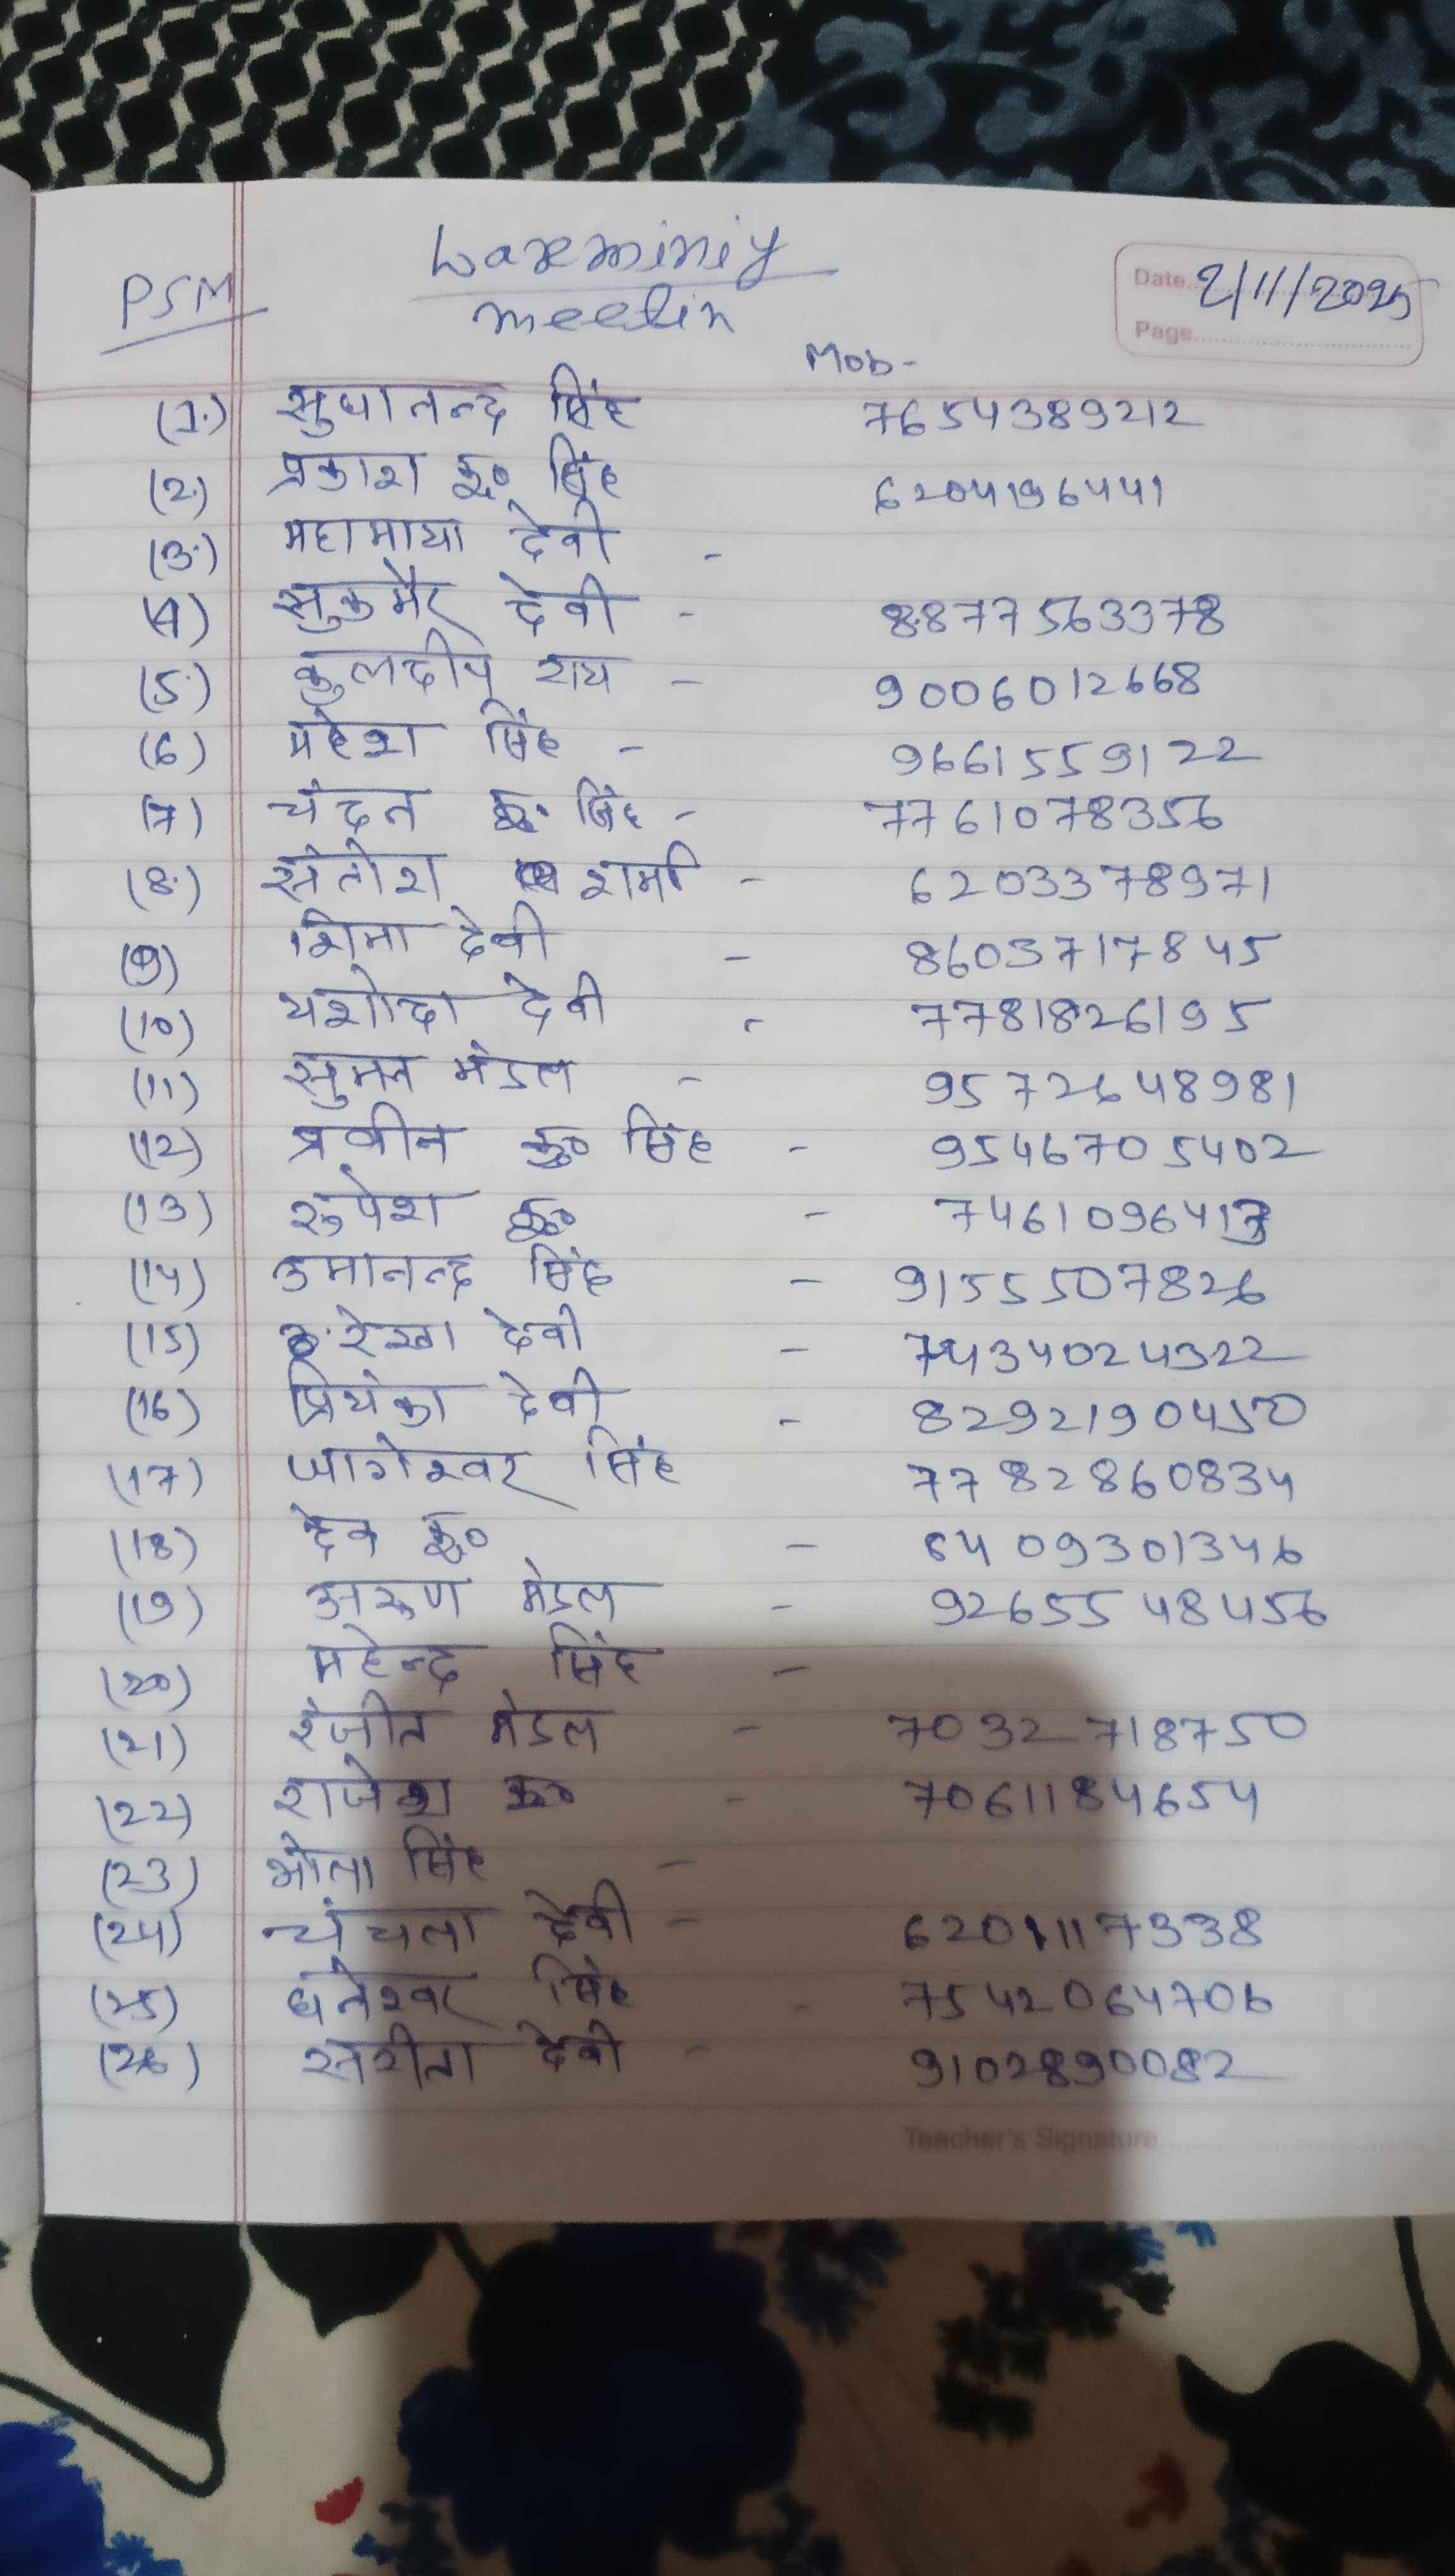 PSM
Larminiy
meetin
Date. 2/11/2025
Page
Mob-
(1.) सुधानन्द सिंह 7654389212
(2.) प्रकाश कु० सिंह 6204196441
(3.) महामाया देवी -
(4) सुकमैर देवी - 8877563378
(5.) कुलदीप राय - 9006012668
(6) महेश सिंह - 9661559122
(7) चंदन कु. सिंह - 7761078356
(8.) संतोश शर्मा - 6203378971
(9) शिमा देवी - 8603717845
(10) यशोदा देवी - 7781826195
(11) सुमन मंडल - 9572648981
(12) प्रवीन कु० सिंह - 9546705402
(13) रुपेश कु० - 7461096413
(14) उमानन्द सिंह - 9155507826
(15) रेखा देवी - 7434024322
(16) प्रियंका देवी - 8292190450
(17) जागेश्वर सिंह 7782860834
(18) देव कु० - 6409301346
(19) अरुण मंडल - 9265548456
(20) महेन्द्र सिंह -
(21) रंजीत मंडल - 7032718750
(22) राजेश कु० - 7061184654
(23) भोला सिंह -
(24) चंचला देवी - 6201117338
(25) धनेश्वर सिंह - 7542064706
(26) सरीता देवी - 9102890082
Teacher's Signature